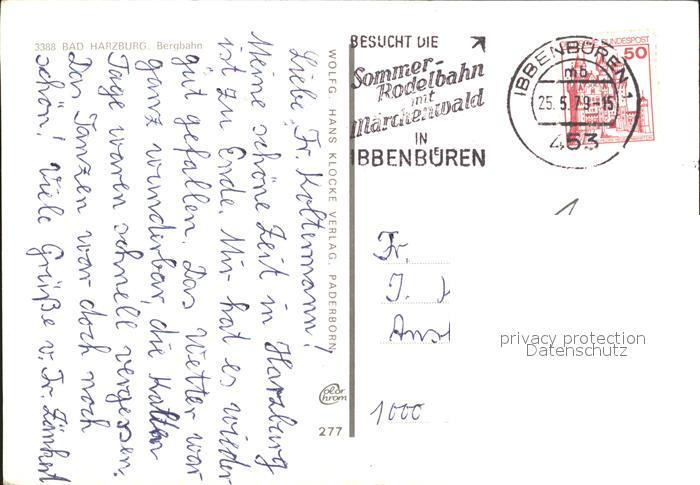 3388 BAD HARZBURG. Bergbahn
Liebe Fr. Koltermann!
Meine schöne Zeit in Harzburg
ist zu Ende. Mir hat es wieder
gut gefallen. Das Wetter war
ganz wunderbar, die kalten
Tage waren schnell vergessen.
Das Tanzen war doch noch
schön! Viele Grüße v. Fr.
WOLFG. HANS KLOCKE VERLAG. PADERBORN
Color
chrom
277
BESUCHT DIE
Sommer-
Rodelbahn
mit
Märchenwald
IN
IBBENBÜREN
IBBENBÜREN 1
mb
25.5.79-15
453
DEUTSCHE BUNDESPOST
50
1
Fr.
J.
1000
privacy protection
Datenschutz